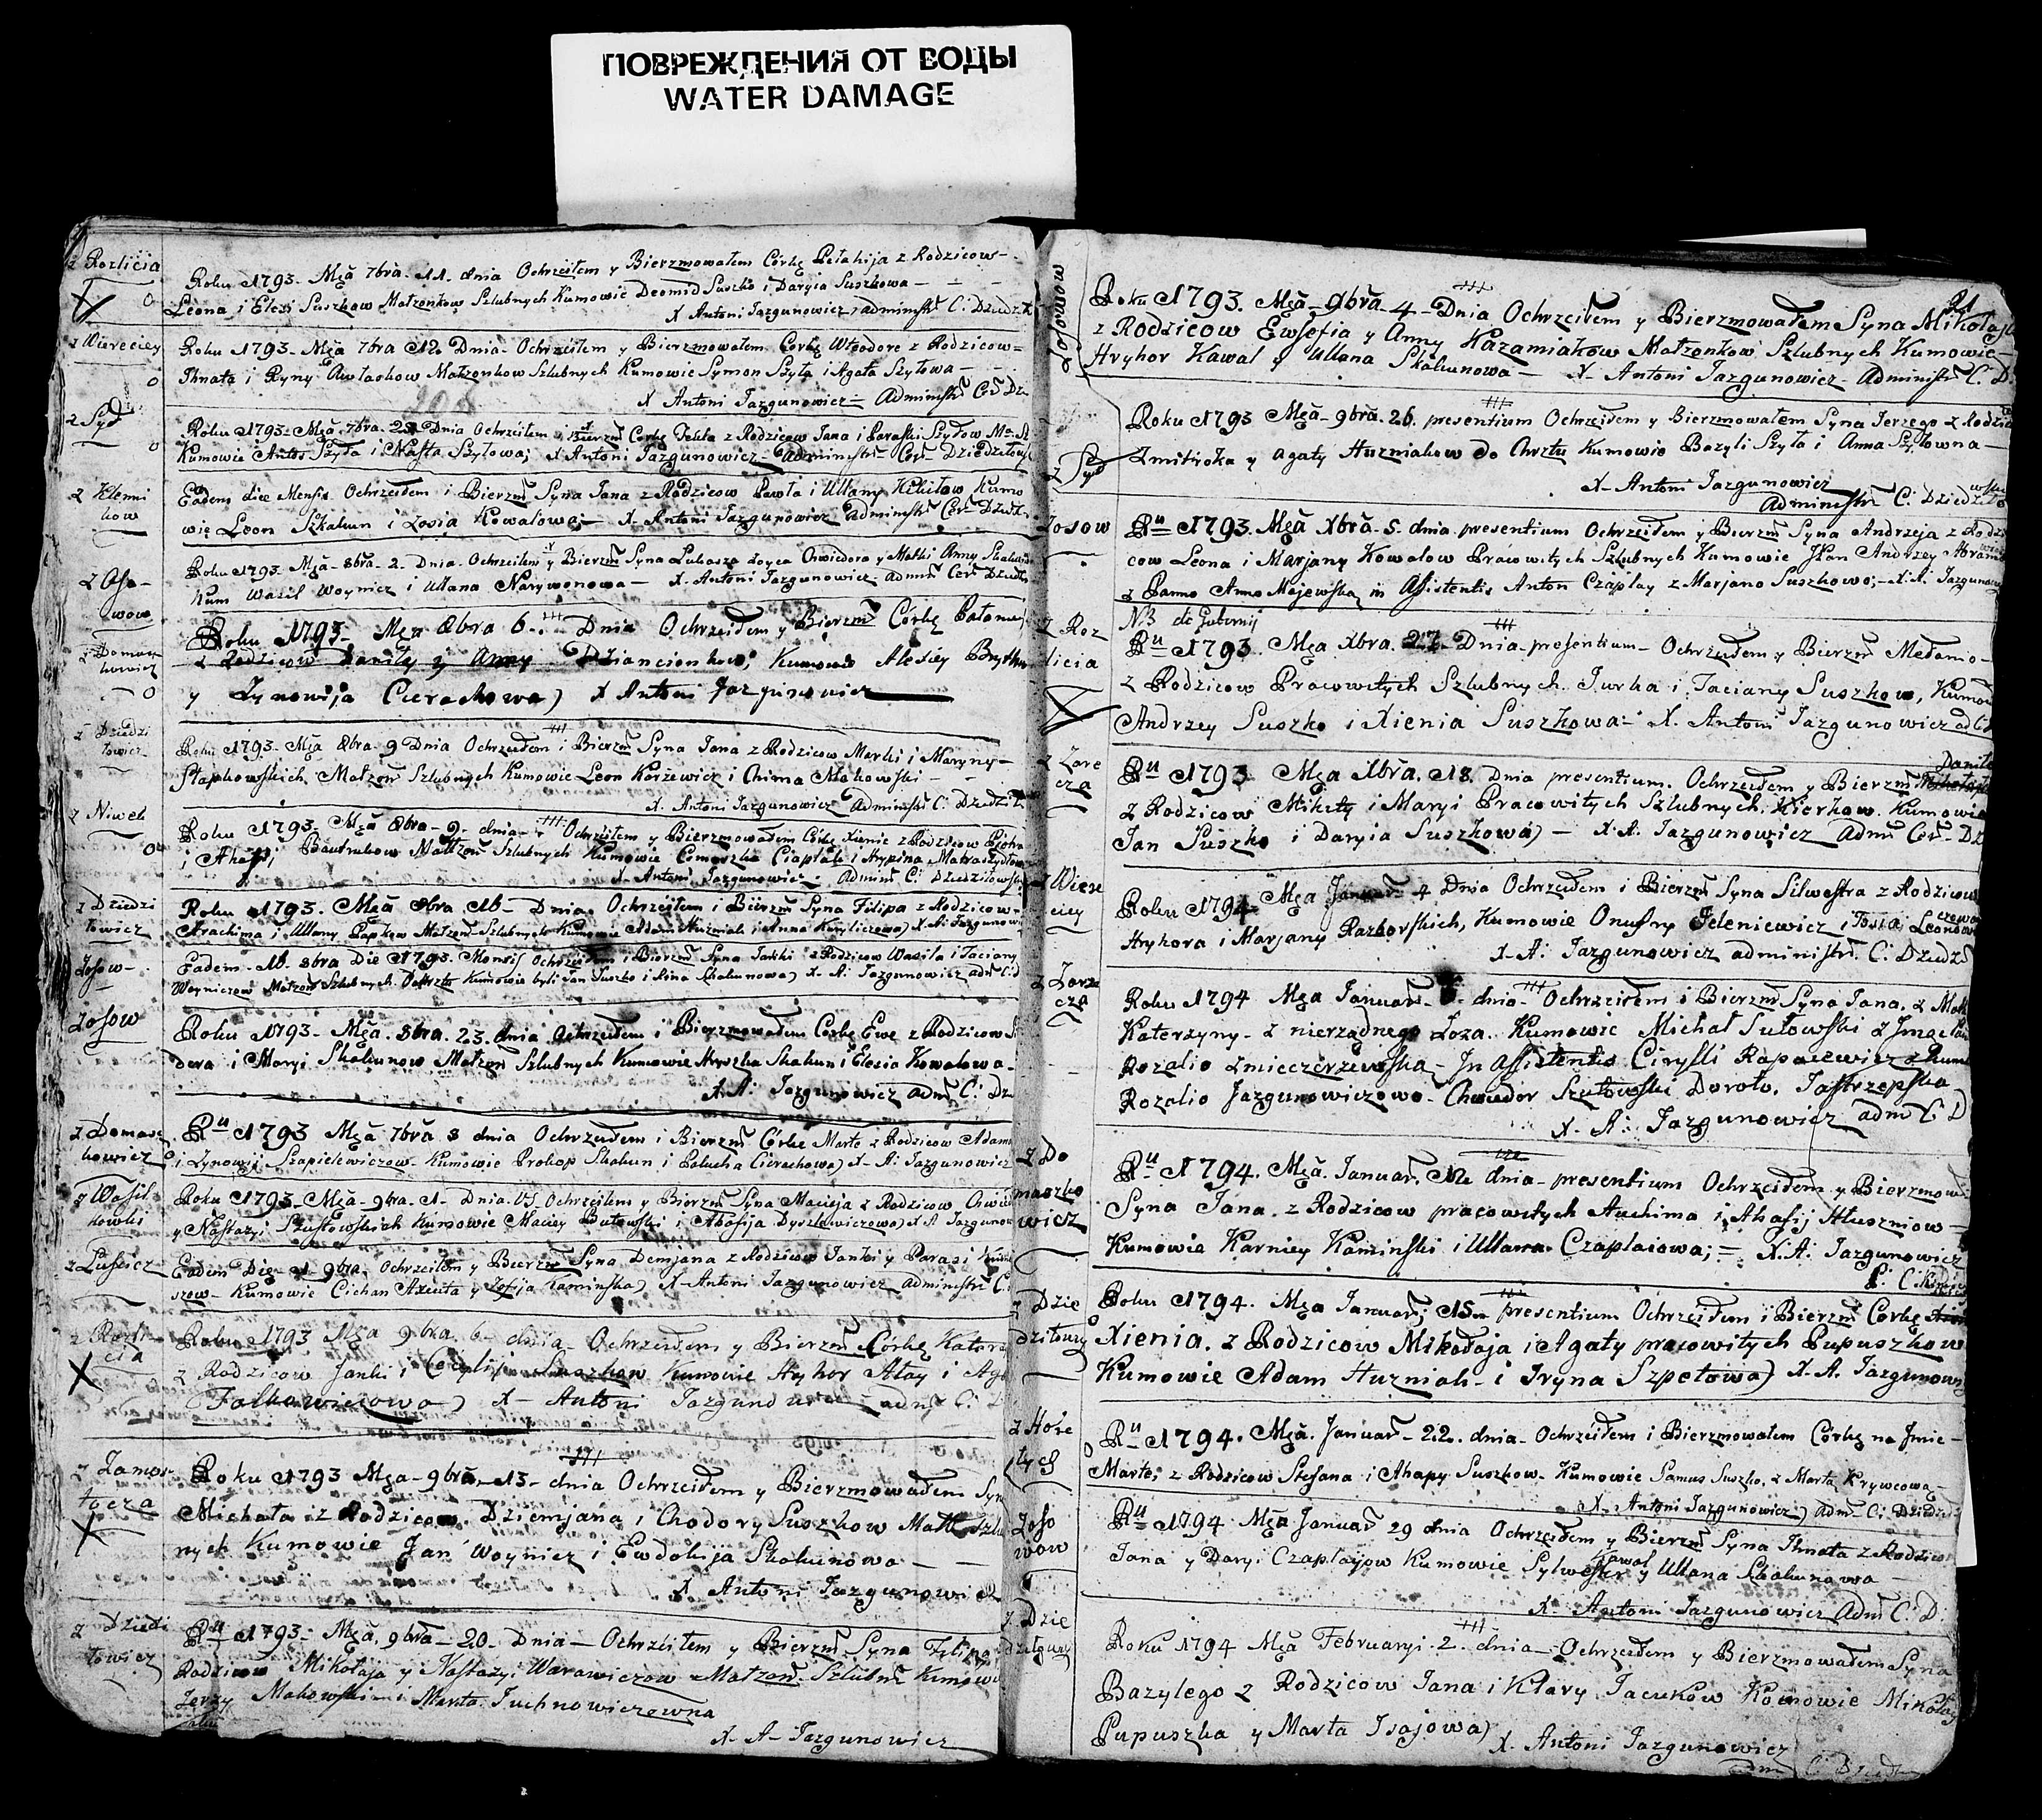 ПОВРЕЖДЕНИЯ ОТ ВОДЫ
WATER DAMAGE
z Rozlicia
Roku 1793. Mga 7bra. 11. dnia Ochrzciłem y Bierzmowałem Córkę Pelahija z Rodzicow
Leona i Elesi Suszkow Małzonkow Szlubnych Kumowie Deomid Suszko i Daryia Suszkowa
X Antoni Jazgunowicz administr C: Dziedz
z Wiereciey
Roku 1793. Mga 7bra 12. Dnia Ochrzciłem y Bierzmowałem Corkę Wteodore z Rodzicow
Ihnata i Ryny Awlaskow Małzonkow Szlubnych Kumowie Symon Szyła i Agata Szyłowa
X Antoni Jazgunowicz Administr C Dz
z Syd
Roku 1793. Mga 7bra. Dnia Ochrzciłem i Bierzm Corkę Tekla z Rodzicow Jana i Paraski Szyłow
Kumowie Antos Szyła i Nasta Szyłowa; X Antoni Jazgunowicz Administr Cer Dziedziłow
z Klenni
kow
Eadem die Mensis Ochrzciłem i Bierzm Syna Jana z Rodzicow Pawła i Ullany Kikiłow Kumo
wie Leon Szkakun i Zosia Kowalowa; X Antoni Jazgunowicz Administr Cer Dziedz
z Oso-
wow
Roku 1793. Mga 8bra. 2. Dnia Ochrzciłem y Bierzm Syna Lukasza Oyca Chwiedora y Matki Anny
Kum Wasil Woynicz i Ullana Narywonowa X. Antoni Jazgunowicz admin Cer Dziedz
z Domasz
kowicz
Roku 1793. Mga 8bra 6. Dnia Ochrzciłem y Bierzm Córkę
z Rodzicow Daniły y Anny Dziancionkow; Kumowie Alesiey
y Zynowija Cierachowa) X Antoni Jazgunowicz
z Dziedzi
łowicz
Roku 1793. Mga 8bra 9 Dnia Ochrzciłem i Bierzm Syna Jana z Rodzicow Marki i Maryny
Słapkowskich Małzon Szlubnych Kumowie Leon Korzewicz i Chima Makowski
X. Antoni Jazgunowicz Administr C: Dziedził
z Niwek
Roku 1793. Mga 8bra 9. dnia Ochrzciłem y Bierzmowałem Córkę Xienie z Rodzicow Piotra
i Ahafii Bautrukow Małzon Szlubnych Kumowie Ciaplak i Hrypina
X. Antoni Jazgunowicz Admin C: Dziedziłowski
z Dziedzi
łowicz
Roku 1793. Mga 8bra 16 Dnia Ochrzciłem i Bierzm Syna Filipa z Rodzicow
Arachima i Ullany Papkow Małzon Szlubnych Kumowie Adam Huzniak i Anna X. A. Jazgunow
Zosow
Eadem 16. 8bra Die 1793. Mensis Ochrzciłem i Bierzm Syna Janki z Rodzicow Wasila i Taciany
Woyniczow Małzon Szlubnych Kumowie byli Jan Suszko i Rina Skakunowa) X. A. Jazgunowicz adm C: D
Zosow
Roku 1793. Mga 8bra. 23. dnia Ochrzciłem i Bierzmowałem Corkę Ewę z Rodzicow
dera i Maryi Skakunow Małzon Szlubnych Kumowie Hryszka Skakun i Elesia Kowalowa
X. A. Jazgunowicz adm C: Dz
z Domasz
kowicz
Ru 1793 Mga 7bra 8 dnia Ochrzciłem i Bierzm Córkę Marte z Rodzicow Adama
i Zynowii Szapielewiczow Kumowie Prokop Skakun i Palucha Cierachowa) X. A. Jazgunowicz
z Wasil
kowki
Roku 1793. Mga 9bra. 1. Dnia Ochrzciłem y Bierzm Syna Macieja z Rodzicow Chwied
y Nastazyi Szustowskich Kumowie Maciey Butowski i Ahafija Dyszlewiczowa) X A Jazgunow
z Luscicz
Eadem Die 1. 9bra. Ochrzciłem y Bierzm Syna Demjana z Rodzicow Janki y Parasi
szow Kumowie Cichan Axiuta y Zofija Kaminska) X Antoni Jazgunowicz Administr C.
z Rozli-
cia
Roku 1793 Mga 9bra. 6. dnia Ochrzciłem y Bierzm Córkę Katar
z Rodzicow Janki i Cecylii Suszkow Kumowie Hyhor Atay i
Falkowiczowa) X Antoni Jazgunowicz adm C: D
z Zamos
tocza
Roku 1793 Mga 9bra. 13. dnia Ochrzciłem y Bierzmowałem Syn
Michała iz Rodzicow Dziemjana i Chodory Suszkow Małz Szlu
nych Kumowie Jan Woynicz i Ewdokija Skakunowa
X Antoni Jazgunowicz
z Dziedzi
łowicz
Ru 1793. Mga. 9bra 20. Dnia Ochrzciłem y Bierzm Syna Filipa
Rodzicow Mikołaja y Nastazyi Warawiczow Małzon Szlubn Kumow
Jerzy Makowski i Marta Juchnowiczowna
X A Jazgunowicz
21
Zosowow
Roku 1793. Mga 9bra 4 Dnia Ochrzciłem y Bierzmowałem Syna Mikołaja
z Rodzicow Ewsefia y Anny Kazamiakow Małzonkow Szlubnych Kumowie
Hryhor Kawal y Ullana Skakunowa X. Antoni Jazgunowicz Administr C. D
z Syd
Roku 1793 Mga 9bra. 26. presentium Ochrzciłem y Bierzmowałem Syna Jerzego z Rodzic
Zmitroka y Agaty Huzniakow do Chrztu Kumowie Bazyli Szyła i Anna Szyłowna
X Antoni Jazgunowicz
Administr C: Dziedziło
Zosow
Ru 1793. Mga Xbra. 5. dnia presentium Ochrzciłem y Bierzm Syna Andrzeja z Rodzi
cow Leona i Marjany Kowalow Pracowitych Szlubnych Kumowie Jan Andrzey
z Panno Anno Majewska in Assistentis Anton Czaplay z Marjano Suszkowo; X. A. Jazgunow
z Roz
licia
N3 de Gubernij
Ru 1793. Mga Xbra. 27. Dnia presentium Ochrzciłem y Bierzm
z Rodzicow Pracowitych Szlubnych Jurka i Taciany Suszkow, Kumow
Andrzey Suszko i Xienia Suszkowa X. Antoni Jazgunowicz ad C
z Zare
cza
Ru 1793 Mga Xbra. 18 Dnia presentium. Ochrzciłem y Bierzm Daniła
z Rodzicow Mikity i Maryi Pracowitych Szlubnych Kierkow. Kumowie
Jan Suszko i Daryia Suszkowa) X. A. Jazgunowicz Adm Cer Dz
z Wiere
ciey
Roku 1794 Mga Januar 4 Dnia Ochrzciłem i Bierzm Syna Silwestra z Rodzicow
Hryhora i Marjany Razborskich, Kumowie Onufry Jeleniewicz i Tosia
X. A. Jazgunowicz administr. C: Dziedz
z Zarze
cza
Roku 1794 Mga Januar dnia Ochrzciłem i Bierzm Syna Jana. z
Katerzyny z nierządnego Łoza. Kumowie Michał Sutowski z
Rozalio Zmieczerzewska In Assistentis Ciryllī Rapacewicz z
Rozalio Jazgunowiczowo. Chwiedor Szutowski Doroto. Jastrzepska
X. A. Jazgunowicz adm C D
z Do
maszko
wicz
Ru 1794. Mga. Januar. 12 dnia presentium Ochrzciłem y Bierzmow
Syna Jana. z Rodzicow pracowitych Auchima i Ahafij Hłuszniow
Kumowie Karniey Kaminski i Ullana Czaplaiowa; X. A. Jazgunowicz
z Dzie
dziłowy
Roku 1794. Mga Januar; 15 presentium Ochrzciłem i Bierzm Córkę
Xienia. z Rodzicow Mikołaja i Agaty pracowitych Pupuszkow
Kumowie Adam Huzniak i Iryna Szpetowa) X. A. Jazgunow
z Hore
łych
Ru 1794. Mga. Januar 22. dnia Ochrzciłem i Bierzmowałem Córkę na Jmie
Marte; z Rodzicow Stefana i Ahapy Suszkow. Kumowie Samus Suszko. z Marta Krywcowa
X. Antoni Jazgunowicz) Adm C: Dziedz
Zoso
wow
Ru 1794 Mga Januar 29 dnia Ochrzciłem y Bierzm Syna Ihnata z Rodzicow
Jana y Daryi Czaplaijow Kumowie Sylwester Kawal y Ullana Skakunowa
X. Antoni Jazgunowicz Adm C: D.
z Dzie
dziłowy
Roku 1794 Mga Februaryi 2. dnia Ochrzciłem y Bierzmowałem Syna
Bazylego z Rodzicow Jana i Klary Jacukow Komowie Mikołay
Pupuszka y Marta Isajowa)
X. Antoni Jazgunowicz
adm C Dziedz